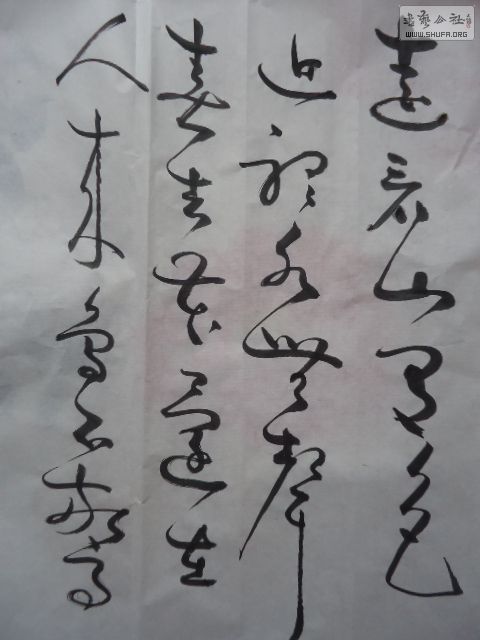 書藝公社
WWW.SHUFA.ORG
遠看山有色
近聽水無聲
春去花還在
人來鳥不驚